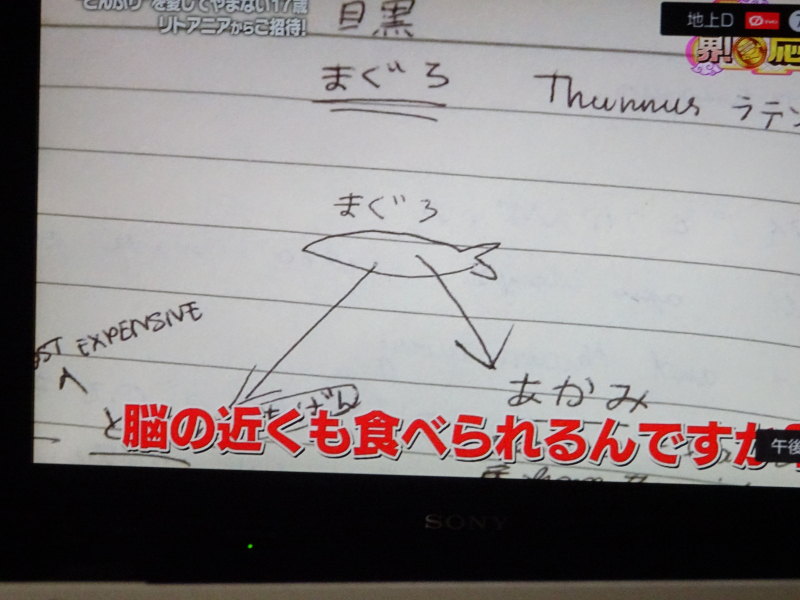 "どんぶり"を愛してやまない17歳
リトアニアからご招待!
地上D
目黒
界!
まぐろ
Thunnus ラテン
まぐろ
EXPENSIVE
あかみ
と
脳の近くも食べられるんですか
午後
SONY